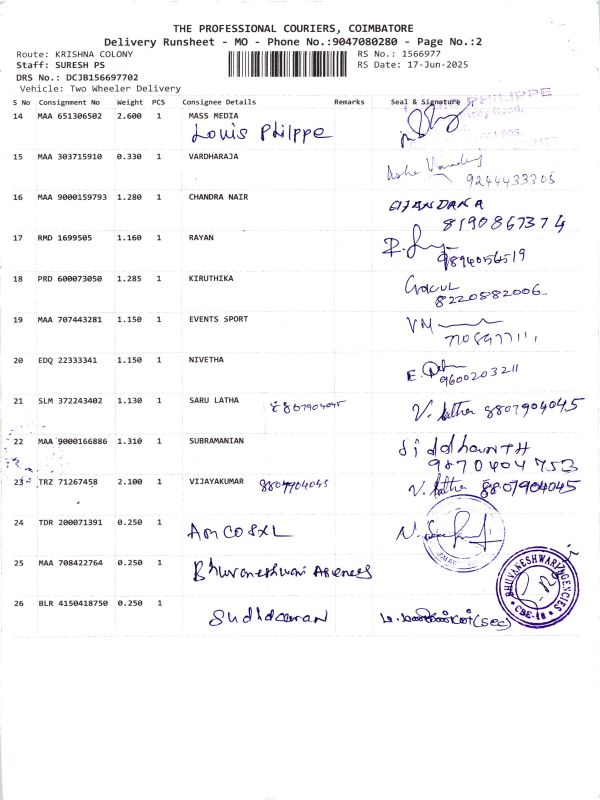 THE PROFESSIONAL COURIERS, COIMBATORE
Delivery Runsheet - MO - Phone No.:9047080280 - Page No.:2
Route: KRISHNA COLONY RS No.: 1566977
Staff: SURESH PS RS Date: 17-Jun-2025
DRS No.: DCJB156697702
Vehicle: Two Wheeler Delivery
S No Consignment No Weight PCS Consignee Details Remarks Seal & Signature
14 MAA 651306502 2.600 1 MASS MEDIA PHILIPPE
Louis Philppe
15 MAA 303715910 0.330 1 VARDHARAJA
9244433305
16 MAA 9000159793 1.280 1 CHANDRA NAIR
8190867374
17 RMD 1699505 1.160 1 RAYAN
9894056519
18 PRD 600073050 1.285 1 KIRUTHIKA Gokul
8220882006
19 MAA 707443281 1.150 1 EVENTS SPORT VM
20 EDQ 22333341 1.150 1 NIVETHA
9600203211
21 SLM 372243402 1.130 1 SARU LATHA 8807904045 V. latha 8807904045
22 MAA 9000166886 1.310 1 SUBRAMANIAN SiddhanTH
9870404753
23 TRZ 71267458 2.100 1 VIJAYAKUMAR 8807904045 V. latha 8807904045
24 TDR 200071391 0.250 1
25 MAA 708422764 0.250 1 Bhuvaneshwari Agencies BHUVANESHWARI AGENCIES
CBE-18
26 BLR 4150418750 0.250 1 (sec)